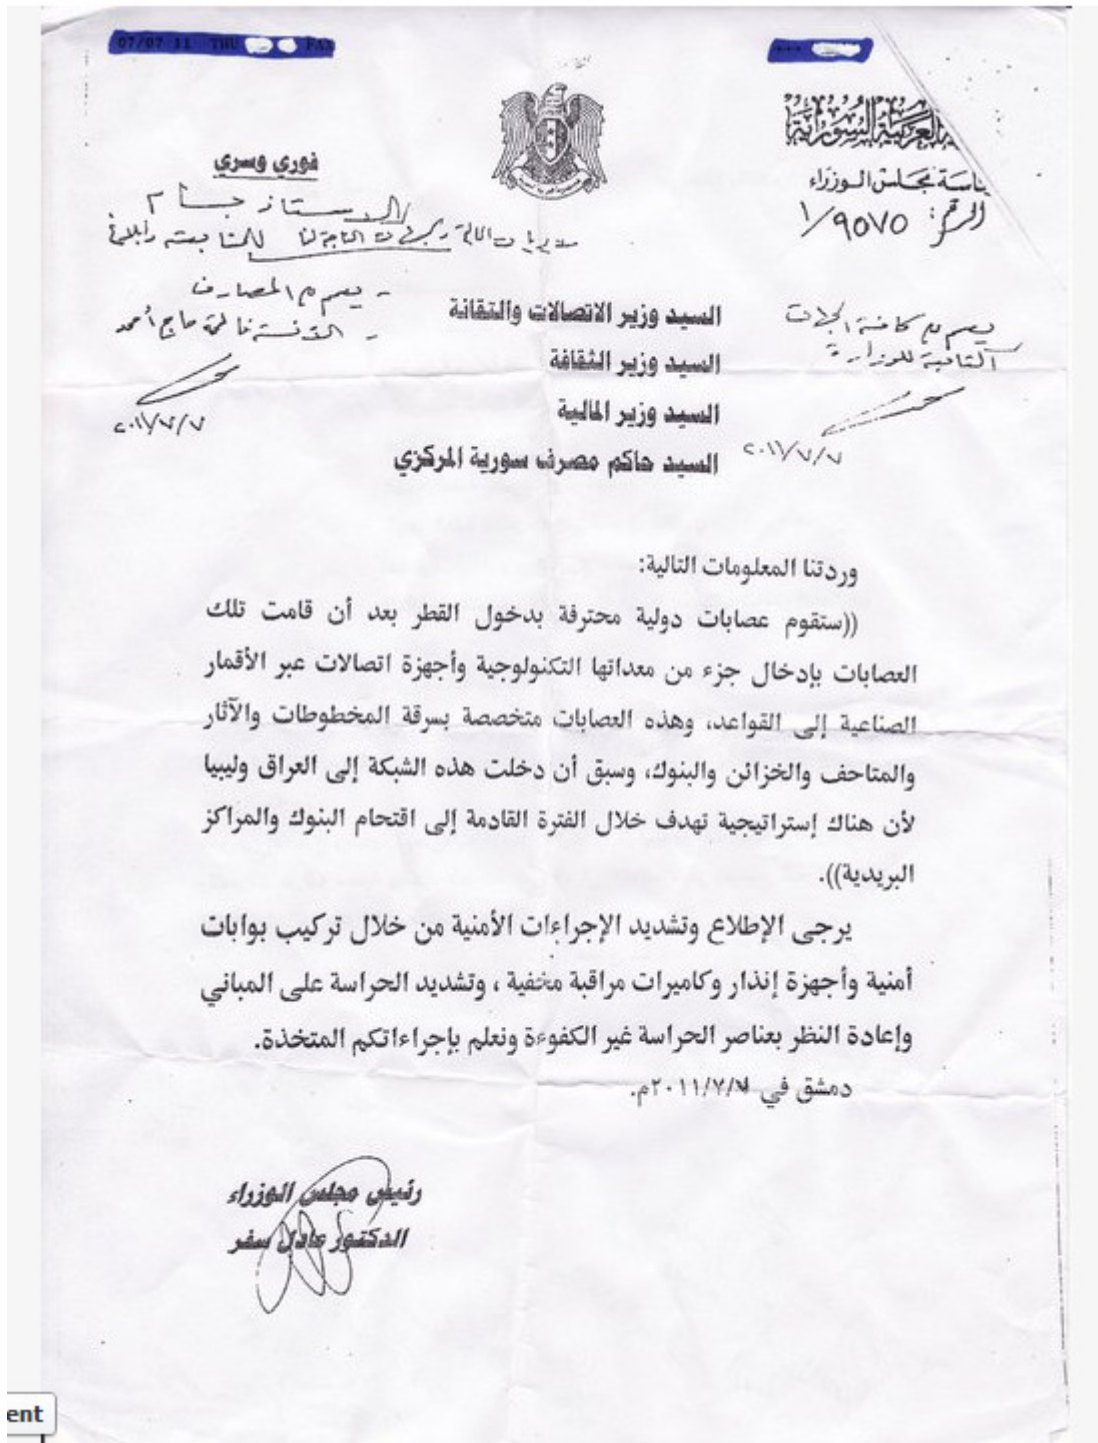 07/07 11 THU FAX
العربية السورية
رئاسة مجلس الوزراء
الرقم: ١/٩٥٧٥
فوري وسري
الاستاذ حسام
يعمم المصارف
يعمم كافة الجهات
التابعة للوزارة
٢٠١١/٧/٧
٢٠١١/٧/٧
السيد وزير الاتصالات والتقانة
السيد وزير الثقافة
السيد وزير المالية
السيد حاكم مصرف سورية المركزي
وردتنا المعلومات التالية:
((ستقوم عصابات دولية محترفة بدخول القطر بعد أن قامت تلك
العصابات بإدخال جزء من معداتها التكنولوجية وأجهزة اتصالات عبر الأقمار
الصناعية إلى القواعد، وهذه العصابات متخصصة بسرقة المخطوطات والآثار
والمتاحف والخزائن والبنوك، وسبق أن دخلت هذه الشبكة إلى العراق وليبيا
لأن هناك إستراتيجية تهدف خلال الفترة القادمة إلى اقتحام البنوك والمراكز
البريدية)).
يرجى الإطلاع وتشديد الإجراءات الأمنية من خلال تركيب بوابات
أمنية وأجهزة إنذار وكاميرات مراقبة مخفية ، وتشديد الحراسة على المباني
وإعادة النظر بعناصر الحراسة غير الكفوءة ونعلم بإجراءاتكم المتخذة.
دمشق في ٢٠١١/٧/٧م.
رئيس مجلس الوزراء
الدكتور عادل سفر
ent